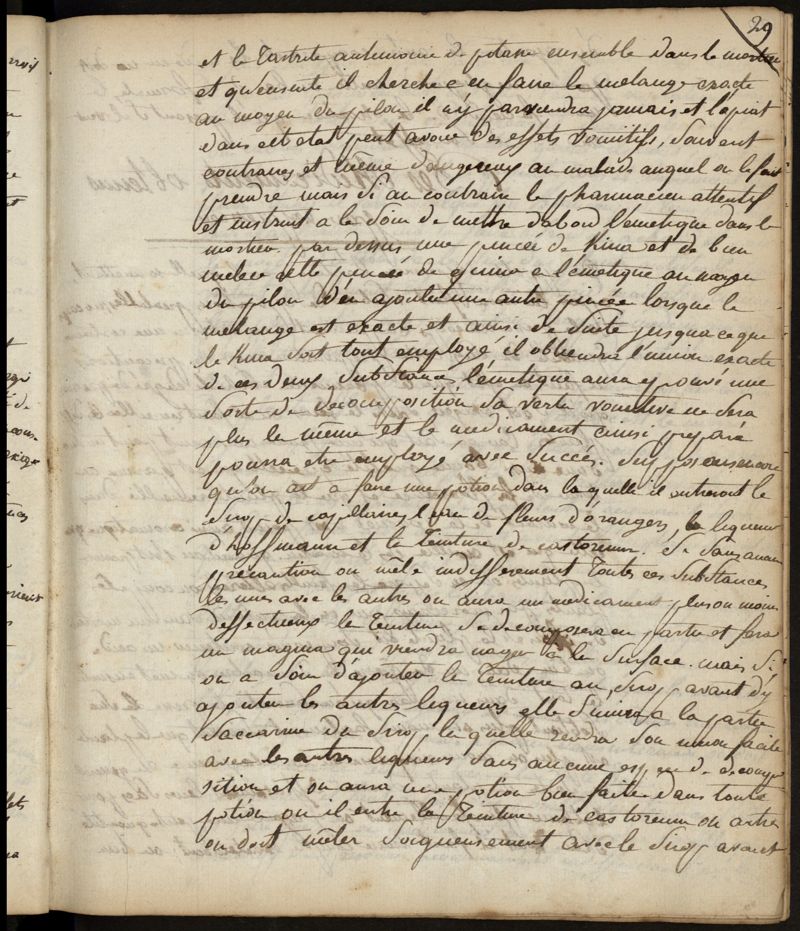 29
et le Tartrite antimonié de potasse ensemble dans le mortier
et qu'ensuite il cherche a en faire le melange exacte
au moyen du pilon il n'y parviendra jamais et l'opiat
dans cet etat peut avoir des effets vomitifs, souvent
contraires et même dangereux au malade auquel on le fait
prendre mais si au contraire le pharmacien attentif
et instruit a le soin de mettre d'abord l'émetique dans le
mortier par dessus une pincée de Kina et de bien
mêler cette pincée de quina a l'émetique au moyen
du pilon d'en ajouter une autre pincée lorsque le
melange est exacte et ainsi de suite jusqu'a ce que
le Kina soit tout employé, il obtiendra l'union exacte
de ces deux substances l'émetique aura eprouvé une
sorte de decomposition sa vertu vomitive ne sera
plus la même et le medicament ainsi preparé
pourra etre employé avec succès. Supposons encore
qu'on ait a faire une potion dans laquelle il entreroit le
sirop de capillaires, l'eau de fleurs d'oranger, la liqueur
d'hoffmann et la Teinture de castoreum. Si sans aucune
précaution on mêle indifferement toutes ces substances
les unes avec les autres on aura un medicament plus ou moins
deffectueux la Teinture se decomposera en partie et fera
un magma qui viendra nager a la surface. mais si
on a soin d'ajouter la Teinture au sirop avant d'y
ajouter les autres liqueurs elle s'unira a la partie
saccarine du sirop laquelle rendra son union facile
avec les autres liqueurs sans aucune espece de decompo
sition et on aura une potion bien faite dans toute
potion ou il entre la Teinture de castoreum ou autre
on doit mêler soigneusement avec le sirop avant